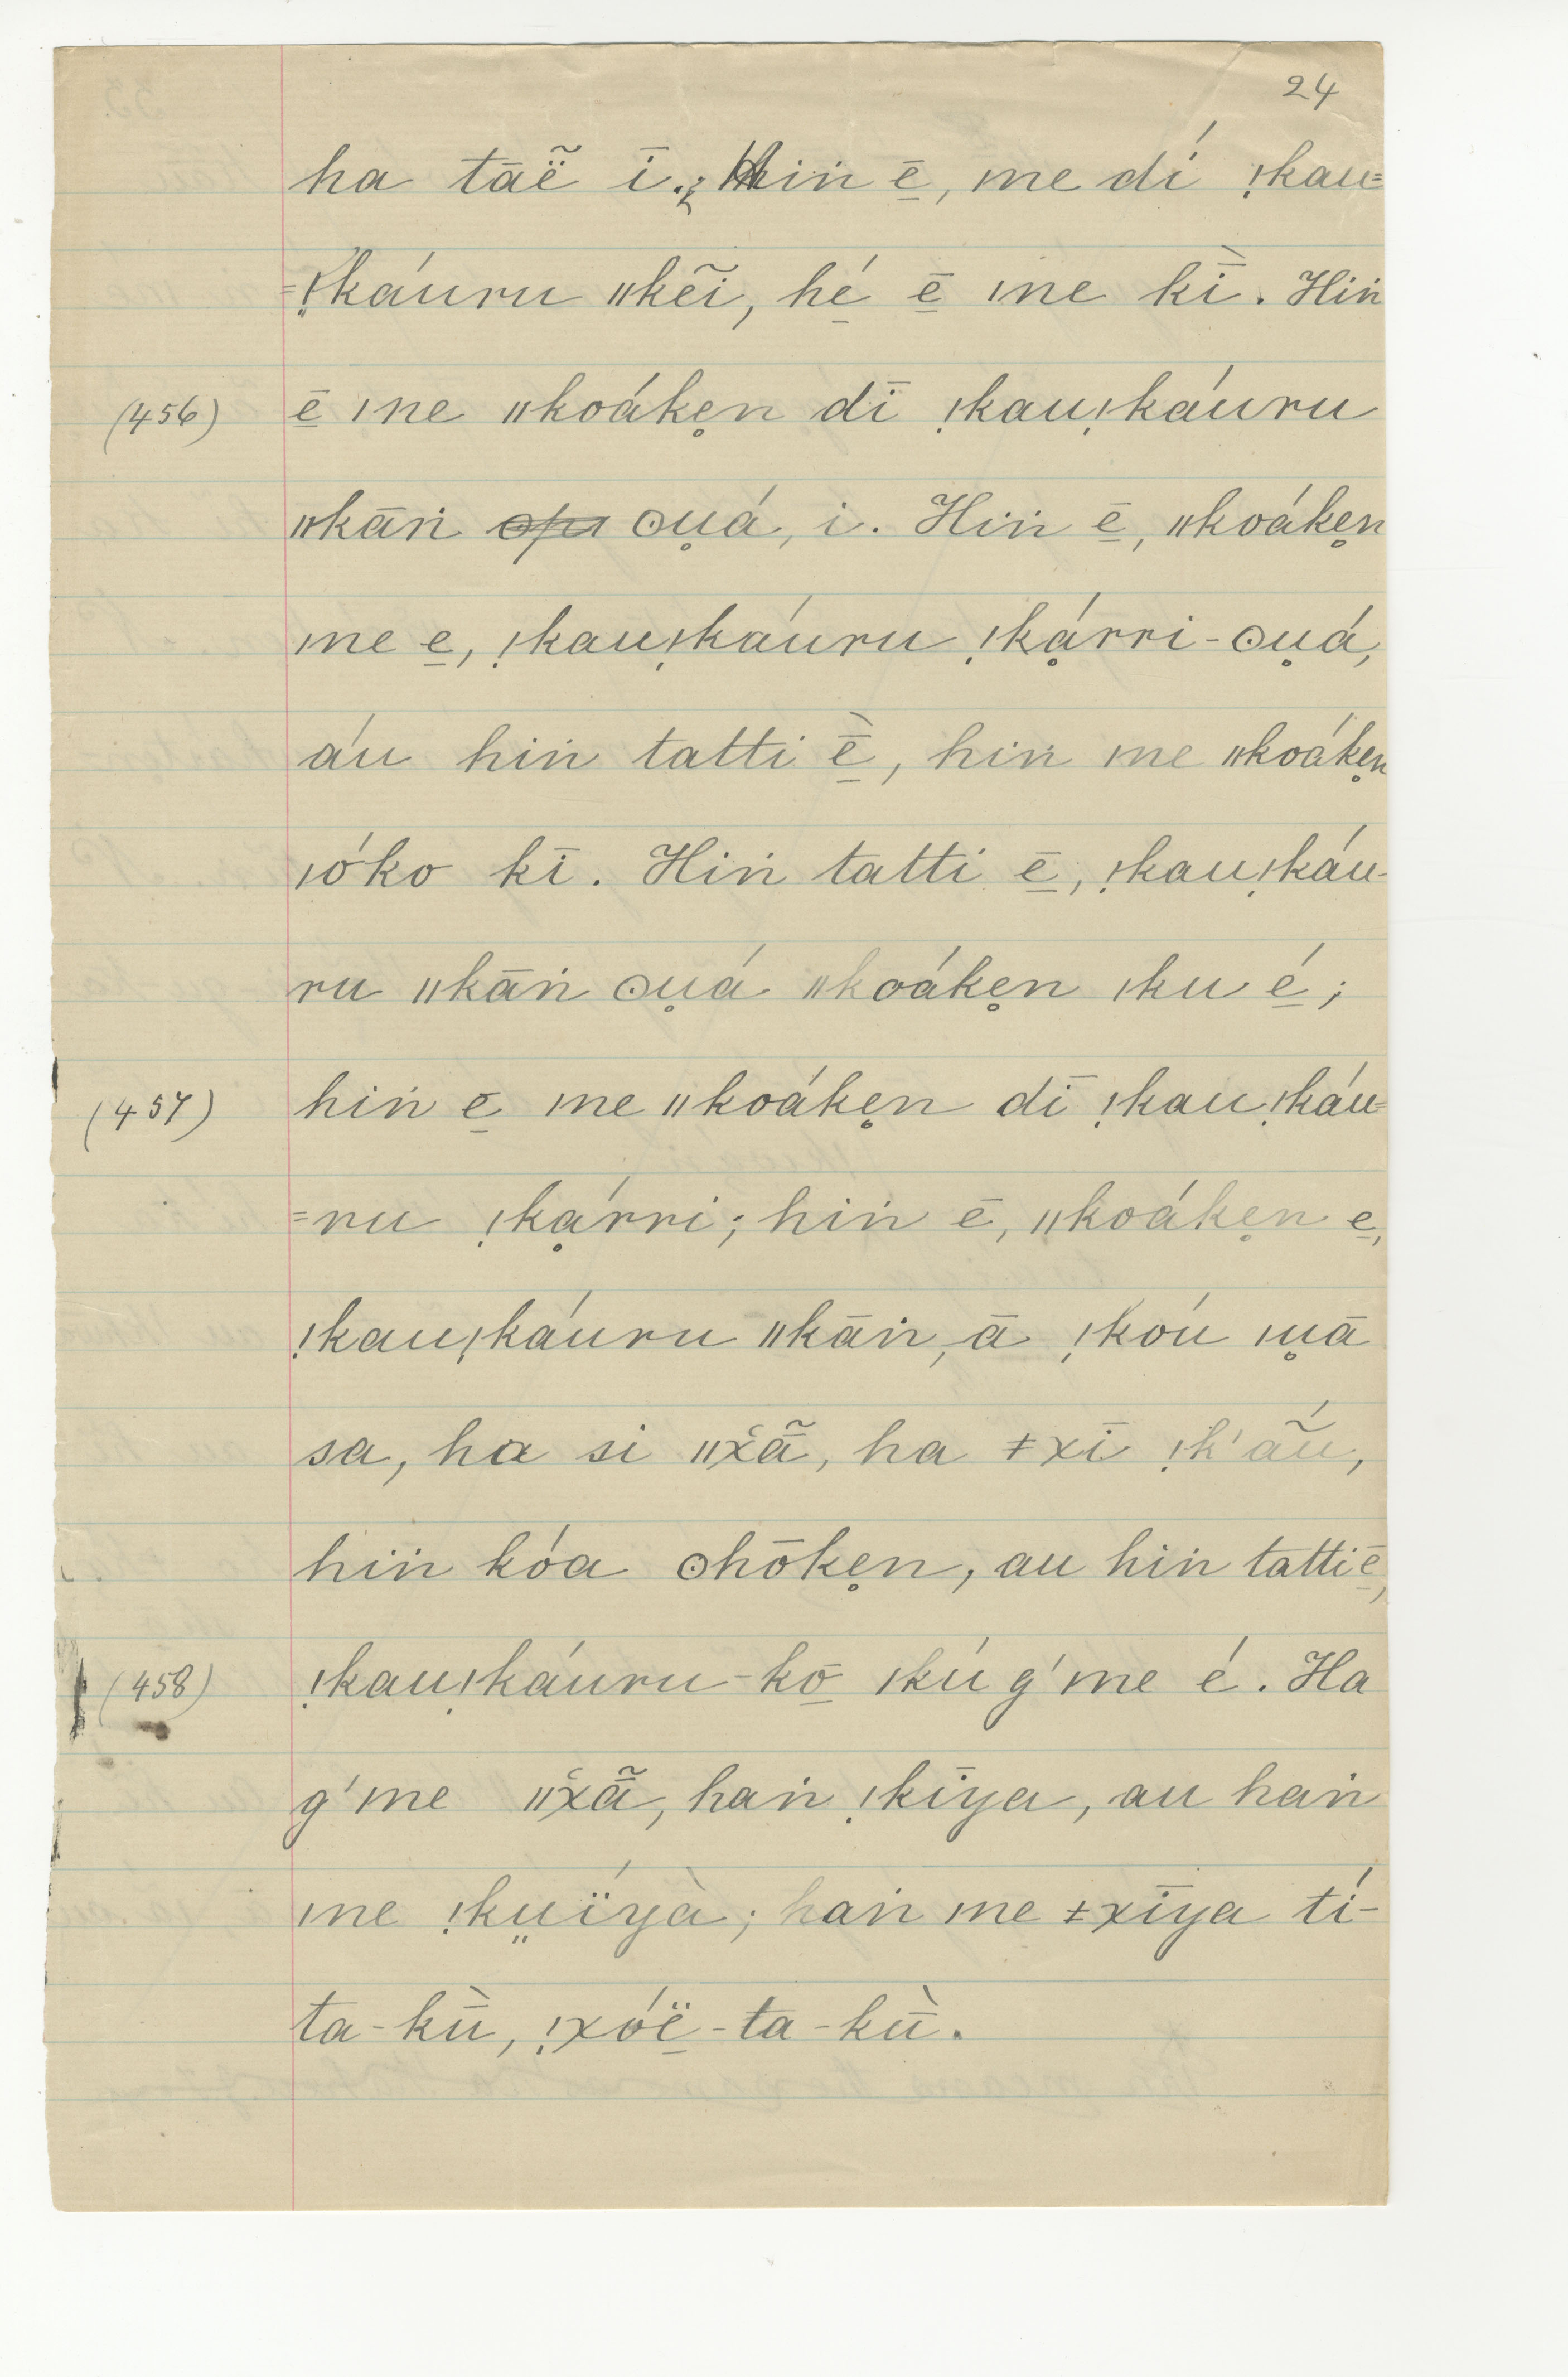 24
ha tāë̃ ī.; hiṅ ē̱, ǀne dí ǃkau=
=ǃkáuru ǁkẽi, hé̱ ē̱ ǀne kī̀. Hiṅ
(456) ē̱ ǀne ǁkoáke̥n dī ǃkauǃkáuru
ǁkāṅ ʘpu ʘu̥á, i. Hiṅ ē̱, ǁkoáke̥n
ǀne e̱, ǃkauǃkáuru ǃkḁ́rri-ʘu̥á,
áu hiṅ tatti ḕ̱, hiṅ ǀne ǁkoáke̥n
ǀóko kī. Hiṅ tatti ē̱, ǃkauǃkáu-
ru ǁkāṅ ʘu̥á ǁkoáke̥n ǀku é̱;
(457) hiṅ ē̱ ǀne ǁkoáke̥n dī ǃkauǃkáu=
=ru ǃkḁ́rri; hiṅ ē, ǁkoáke̥n e̱,
ǃkauǃkáuru ǁkāṅ, ā ǃkóu ǀu̥ā
sa, ha si ǁx̆ā̃, ha ǂxī ǃk'ã́u,
hiṅ kóa ʘhōke̥n, au hiṅ tatti ē̱,
(458) ǃkauǃkáuru-kō̱ ǀkú g'ǀne é. Ha
g'ǀne ǁx̆ā̃, haṅ ǃkīya, au haṅ
ǀne ǃkṳḯyà; haṅ ǀne ǂxīya tí-
ta-kǖ̀, ǃxóë̱-ta-kū̀.